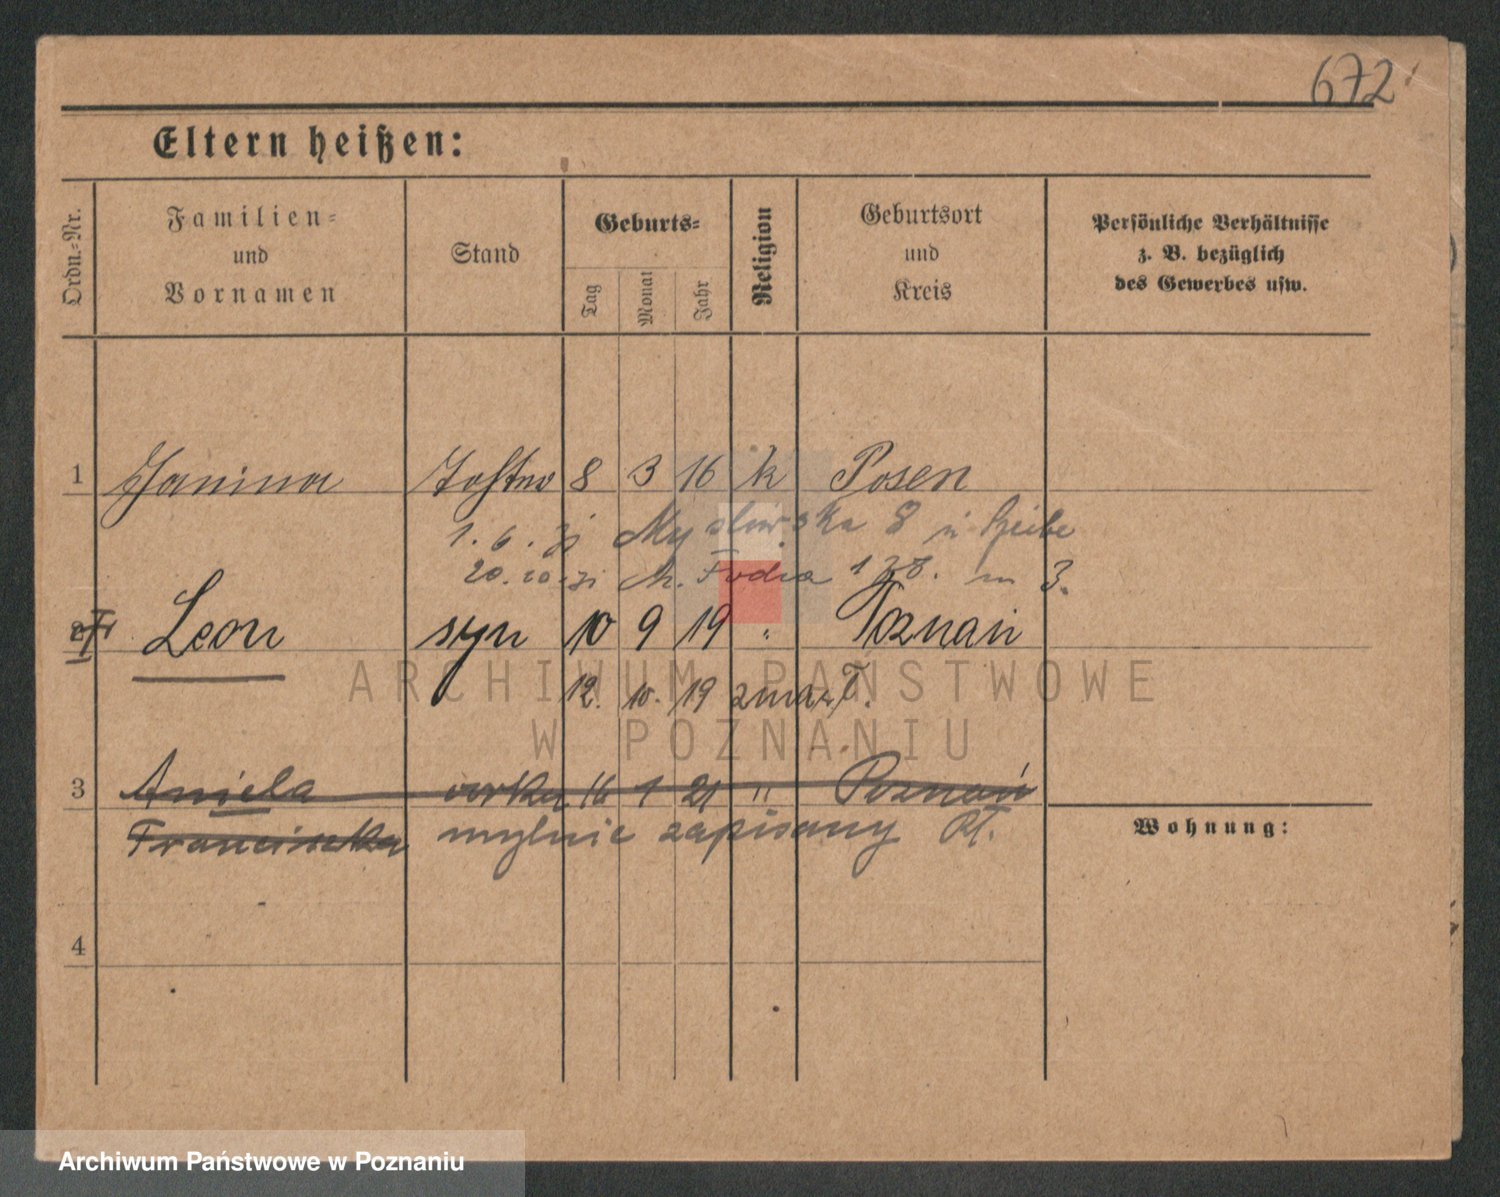 672
Eltern heißen:
Ordn.-Nr.
Familien-
und
Vornamen
Stand
Geburts-
Tag
Monat
Jahr
Religion
Geburtsort
und
Kreis
Persönliche Verhältnisse
z. B. bezüglich
des Gewerbes usw.
1 Janina Tochter 8 3 16 k Posen
1. 6. 31 Mysłowska 8
20. 10. 31 128. m 3.
2 Leon syn 10 9 19 " Poznań
12. 10. 19 zmarł.
ARCHIWUM PAŃSTWOWE
W POZNANIU
3 Aniela córka 16 1 21 " Poznań
Franciszka mylnie zapisany
Wohnung:
4
Archiwum Państwowe w Poznaniu